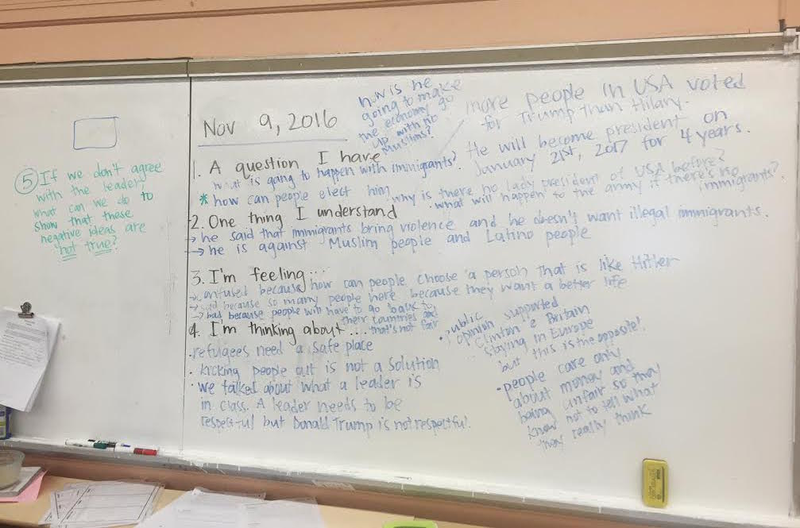 5 If we don't agree
with the leader
what can we do to
show that these
negative ideas are
not true?
Nov 9, 2016
how is he
going to make
the economy go
up with no
Muslims?
more people in USA voted
for Trump than Hilary.
He will become president on
January 21st, 2017 for 4 years.
1. A question I have
what is going to happen with immigrants?
* how can people elect him
why is there no lady president of USA before?
what will happen to the army if there's no
immigrants?
2. One thing I understand
→ he said that immigrants bring violence and he doesn't want illegal immigrants.
→ he is against Muslim people and Latino people
3. I'm feeling...
→ confused because how can people choose a person that is like Hitler
→ because so many people here because they want a better life
→ bad because people will have to go back to
their countries and
that's not fair
4. I'm thinking about...
· refugees need a safe place
· kicking people out is not a solution
· we talked about what a leader is
in class. A leader needs to be
respectful but Donald Trump is not respectful.
· public
opinion supported
Clinton & Britain
staying in Europe
but this is the opposite!
· people care only
about money and
being unfair so they
know not to tell what
they really think